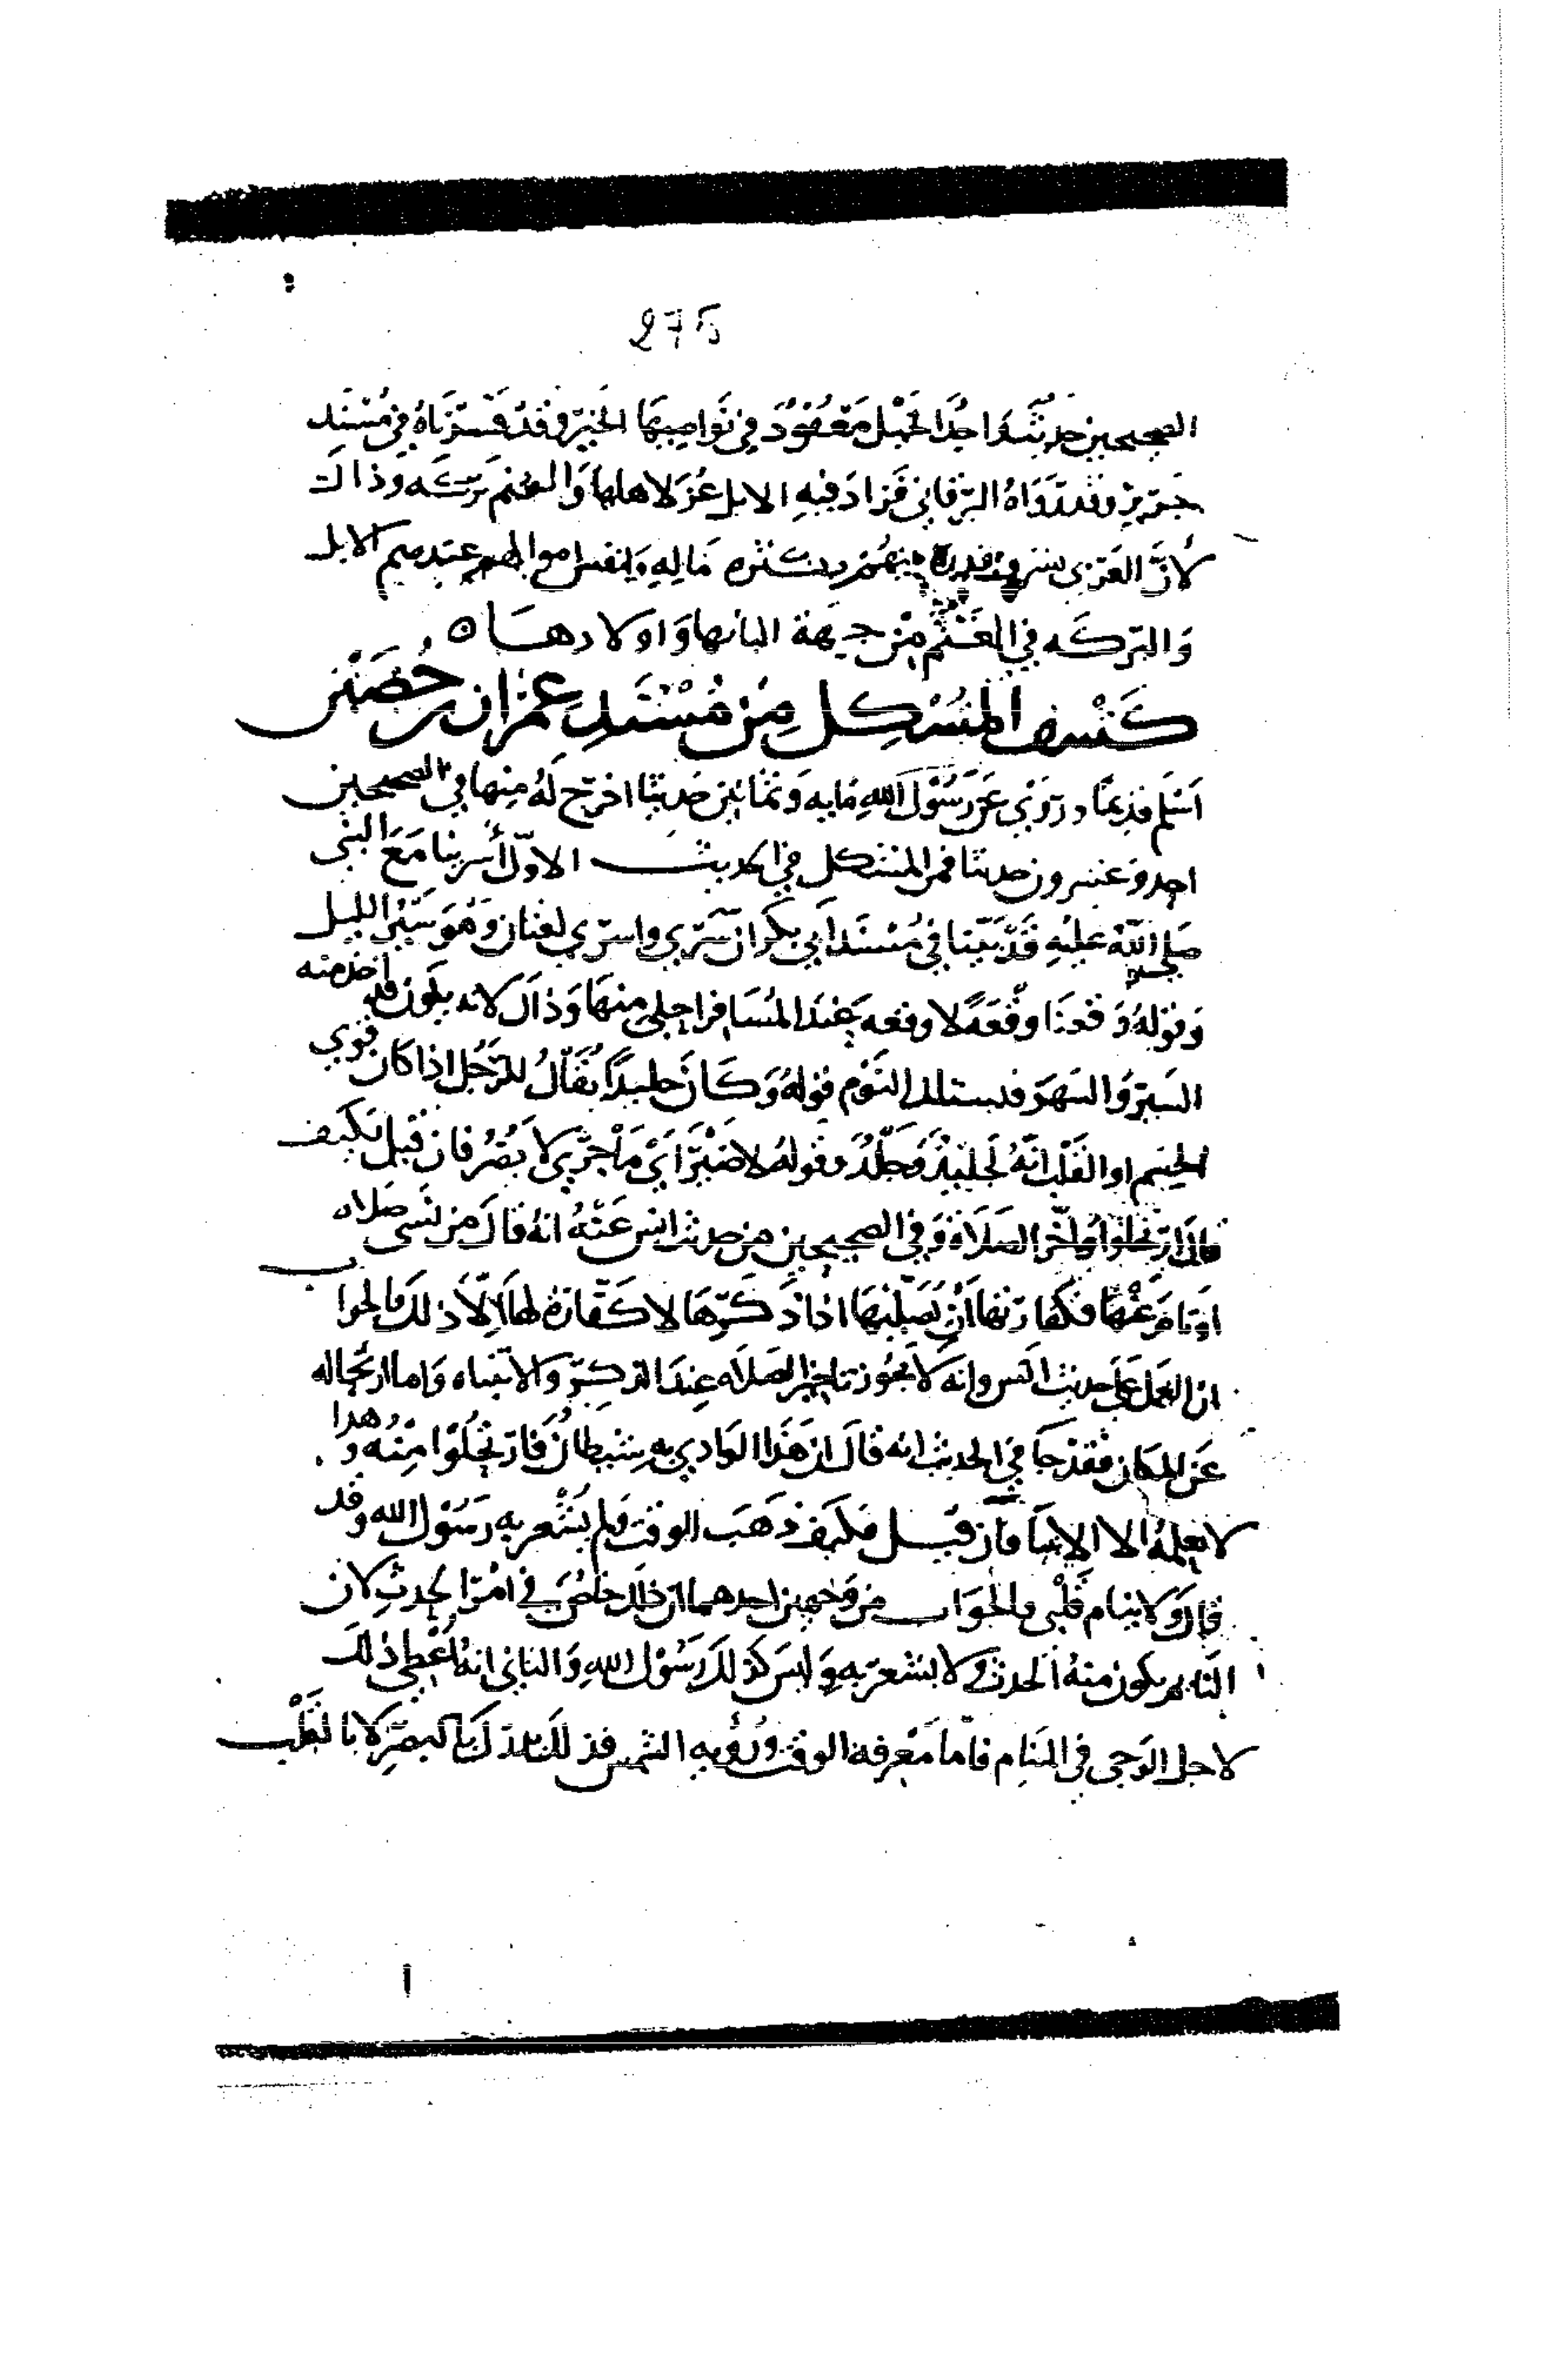 275
الصحيحين حديثا واحدا الخيل معقود في نواصيها الخير وقد فسرناه في مسند
جرير وقد رواه البرقاني فزاد فيه الابل عز لاهلها والغنم بركه وذاك
لان العربي يشرف قدره بينهم بكثره ماله وانفس اموالهم عندهم الابل
والبركه في الغنم من جهة البانها واولادها ه
كشف المشكل من مسند عمران بن حصين
اسلم قديما وروي عن رسول الله مايه وثمانين حديثا اخرج له منها في الصحيحين
احد وعشرون حديثا فمن المشكل في الحديث الاول أسرينا مع النبي
صلى الله عليه قد بينا في مسند أبي بكر ان سرى واسرى لغتان وهو سير الليل
وقوله وقعنا وقعة لا وقعه عند المسافر احلى منها وذاك لانه يكون قد اخذ منه
السير والسهر فيستلذ النوم قوله وكان جليدا يقال للرجل اذا كان قوي
الجسم او القلب انه لجليد وجلد وقوله لا ضير أي ما جرى لا يضر فان قيل فكيف
قال ارتحلوا وأخر الصلاة وفي الصحيحين من حديث انس عنه انه قال من نسي صلاه
او نام عنها فكفارتها أن يصليها اذا ذكرها لا كفارة لها الا ذلك فالجواب
ان العمل على حديث انس وانه لا يجوز تاخير الصلاه عند الذكر والانتباه واما ارتحاله
عن المكان فقد جا في الحديث انه قال ان هذا الوادي به شيطان فارتحلوا منه وهذا
لا يعلمه الا الانبيا فان قيل فكيف ذهب الوقت ولم يشعر به رسول الله وقد
قال ولا ينام قلبي فالجواب من وجهين احدهما ان ذلك خاص في امر الحدث لان
النايم يكون منه الحدث ولا يشعر به وليس كذلك رسول الله والثاني انه أعطي ذلك
لاجل الوحي في المنام فاما معرفة الوقت ورؤيه الشمس فذلك يدرك بالبصر لا بالقلب